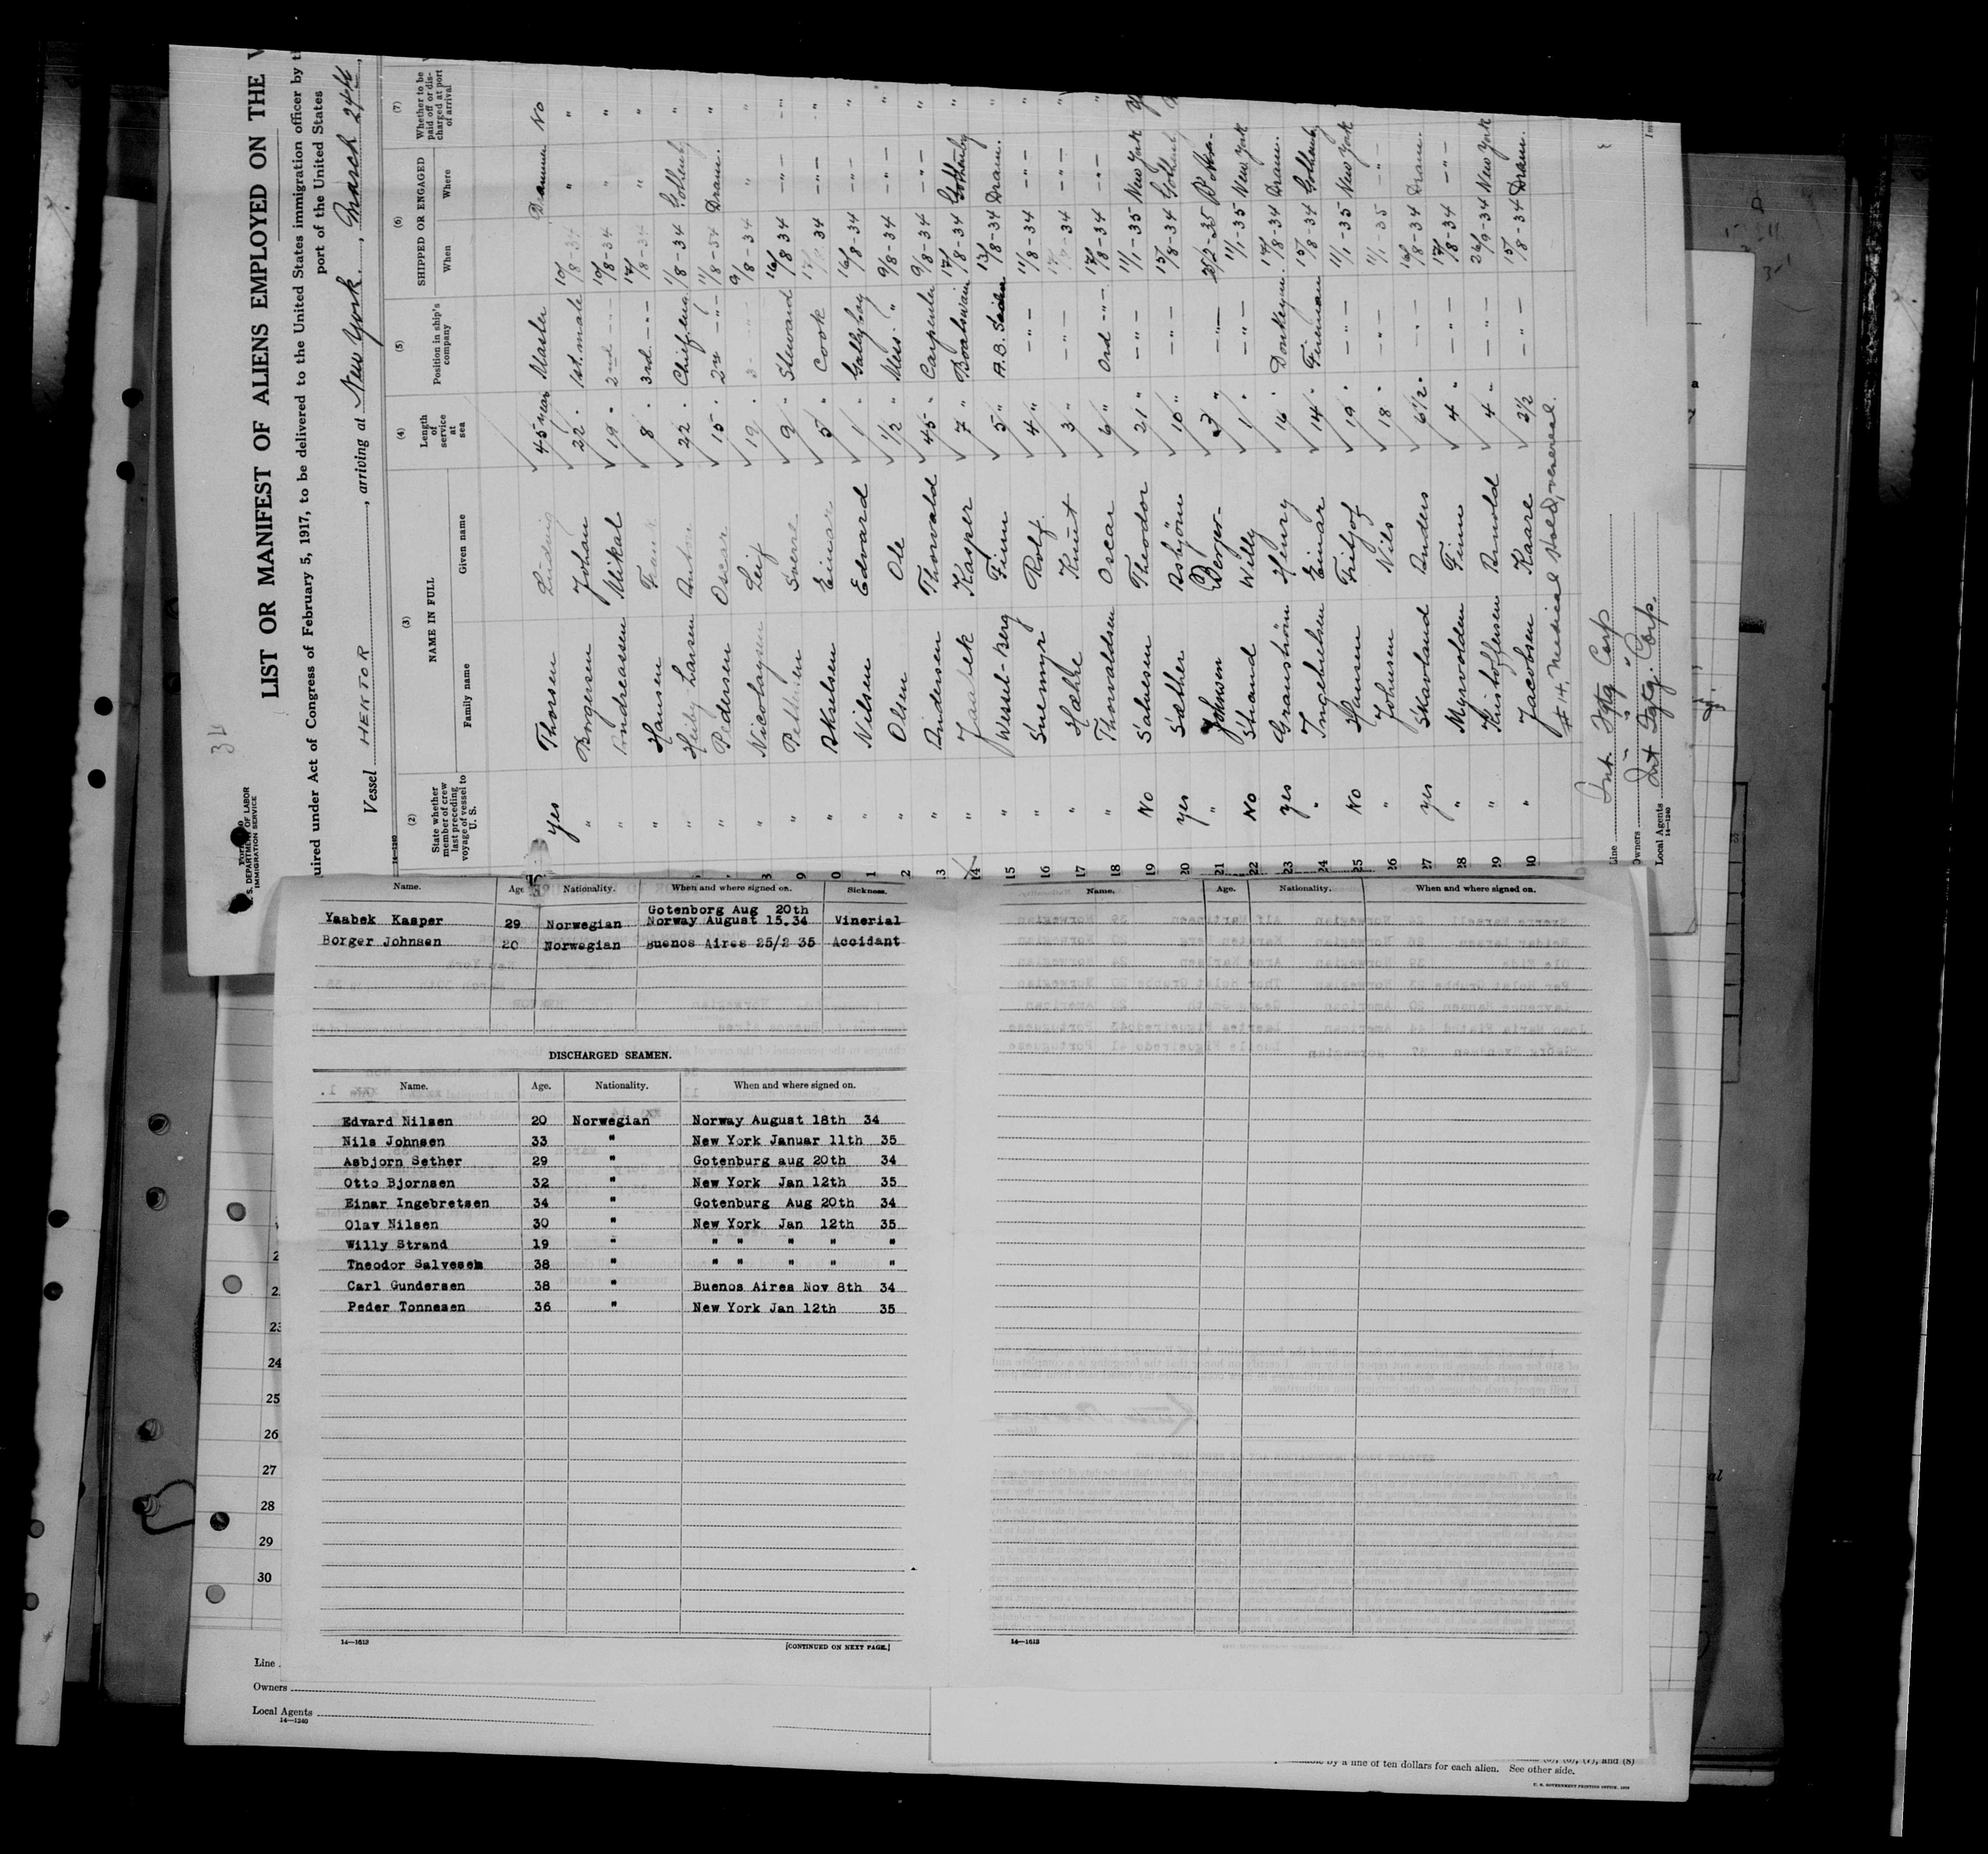 34
LIST OR MANIFEST OF ALIENS EMPLOYED ON THE
uired under Act of Congress of February 5, 1917, to be delivered to the United States immigration officer by t
port of the United States
U. S. DEPARTMENT OF LABOR
IMMIGRATION SERVICE
Vessel HEKTOR, arriving at New York, March 24th,
14—1240
(2) (3) (4) (5) (6) (7)
State whether member of crew last preceding voyage of vessel to U. S.
NAME IN FULL
Family name Given name
Length of service at sea
Position in ship's company
SHIPPED OR ENGAGED
When Where
Whether to be paid off or discharged at port of arrival
Yes Thorsen Ludvig 45 year Master Drammen No
" Borgersen Johan 22 " 1st. mate 10/8-34 " "
" Andreassen Mikal 19 " 2nd -"- 10/8-34 " "
" Hansen Frank 8 " 3rd -"- 17/8-34 " "
" Heiby-Larsen Anton 22 " Chif. eng. 11/8-34 Gothenb. "
" Pedersen Oscar 15 " 2n -"- 11/8-34 Dram. "
" Nicolaysen Leif 19 " 3 -"- 9/8-34 " "
" Pettersen Sverre 9 " Steward 16/8 34 -"- "
9 " Akselsen Einar 5 " Cook 34 -"- "
" Nilsen Edvard 1 " Gallyboy 16/8-34 -"- "
" Olsen Ole 1/2 " Mess. " 9/8-34 -"- "
13 " Andersen Thorvald 45 " Carpenter 9/8-34 -"- "
14 " Jaabek Kasper 7 " Boatswain 17/8-34 Gothenbg "
15 " Wessel-Berg Finn 5 " A.B. 13/8-34 Dram. "
16 " Snemyr Rolf 4 " -"- 11/8-34 -"- "
17 " Hæhre Knut 3 " -"- 34 -"- "
18 " Thorvaldsen Oscar 6 " Ord -"- 17/8-34 -"- "
19 No Salvesen Theodor 21 " -"- 11/1-35 New York
20 yes Sæther Asbjörn 10 " -"- 15/8-34 Gothenb.
21 " Johnsen Berger -"- 25/2-35
22 No Strand Willy 1 " -"- 11/1-35 New York
23 yes Granström Henry 16 " Donkeym. 17/8-34 Dram.
24 " Ingebretsen Einar 14 " Fireman 15/8-34 Gothenb.
25 No Hansen Fritjof 19 " -"- 11/1-35 New York
26 " Johnsen Nils 18 " -"- 11/1-35 -"-
27 yes Skavland Anders 6 1/2 " -"- 16/8-34 Dram.
28 " Myrvolden Finn 4 " -"- 17/8-34 -"-
29 " Kristoffersen Arnold 4 " -"- 26/9-34 New York
30 " Jacobsen Kaare 2 1/2 -"- 15/8-34 Dram.
# 14, Medical Hold, venereal.
Line Int. Fgtg Corp
Owners " "
Local Agents Int Fgtg. Corp.
14—1240
Name. Age. Nationality. When and where signed on. Sickness.
Gotenborg Aug 20th
Yaabek Kasper 29 Norwegian Norway August 15.34 Vinerial
Borger Johnsen 20 Norwegian Buenos Aires 25/2 35 Accidant
DISCHARGED SEAMEN.
Name. Age. Nationality. When and where signed on.
Edvard Nilsen 20 Norwegian Norway August 18th 34
Nils Johnsen 33 " New York Januar 11th 35
Asbjorn Sether 29 " Gotenburg aug 20th 34
Otto Bjornsen 32 " New York Jan 12th 35
Einar Ingebretsen 34 " Gotenburg Aug 20th 34
Olav Nilsen 30 " New York Jan 12th 35
Willy Strand 19 " " " " " "
Theodor Salvesen 38 " " " " " "
Carl Gundersen 38 " Buenos Aires Nov 8th 34
Peder Tonnesen 36 " New York Jan 12th 35
14—1613
[CONTINUED ON NEXT PAGE.]
Name. Age. Nationality. When and where signed on.
14—1613
23
24
25
26
27
28
29
30
Line
Owners
Local Agents
14—1240
by a line of ten dollars for each alien. See other side.
U. S. GOVERNMENT PRINTING OFFICE